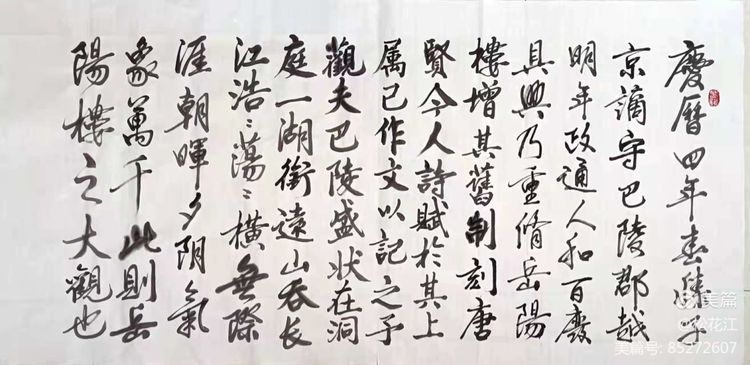 慶曆四年春滕子
京謫守巴陵郡越
明年政通人和百廢
具興乃重脩岳陽
樓增其舊制刻唐
賢今人詩賦於其上
属己作文以記之予
觀夫巴陵盛状在洞
庭一湖銜遠山吞长
江浩〻蕩〻橫無際
涯朝暉夕阴氣
象萬千此則岳
陽樓之大觀也
美篇
@松花江
美篇号: 85272607